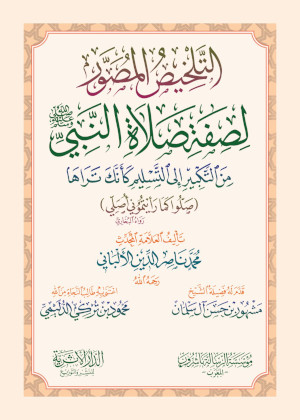 التلخيص المصور
لصفة صلاة النبي ﷺ
من التكبير إلى التسليم كأنك تراها
(صلوا كما رأيتموني أصلي)
رواه البخاري
تأليف العلامة المحدث
محمد ناصر الدين الألباني
رحمه الله
قدم له فضيلة الشيخ
مشهور بن حسن آل سلمان
محمود بن تركي الدليمي
مؤسسة الرسالة ناشرون
المغرب
الدار الأثرية
للنشر والتوزيع